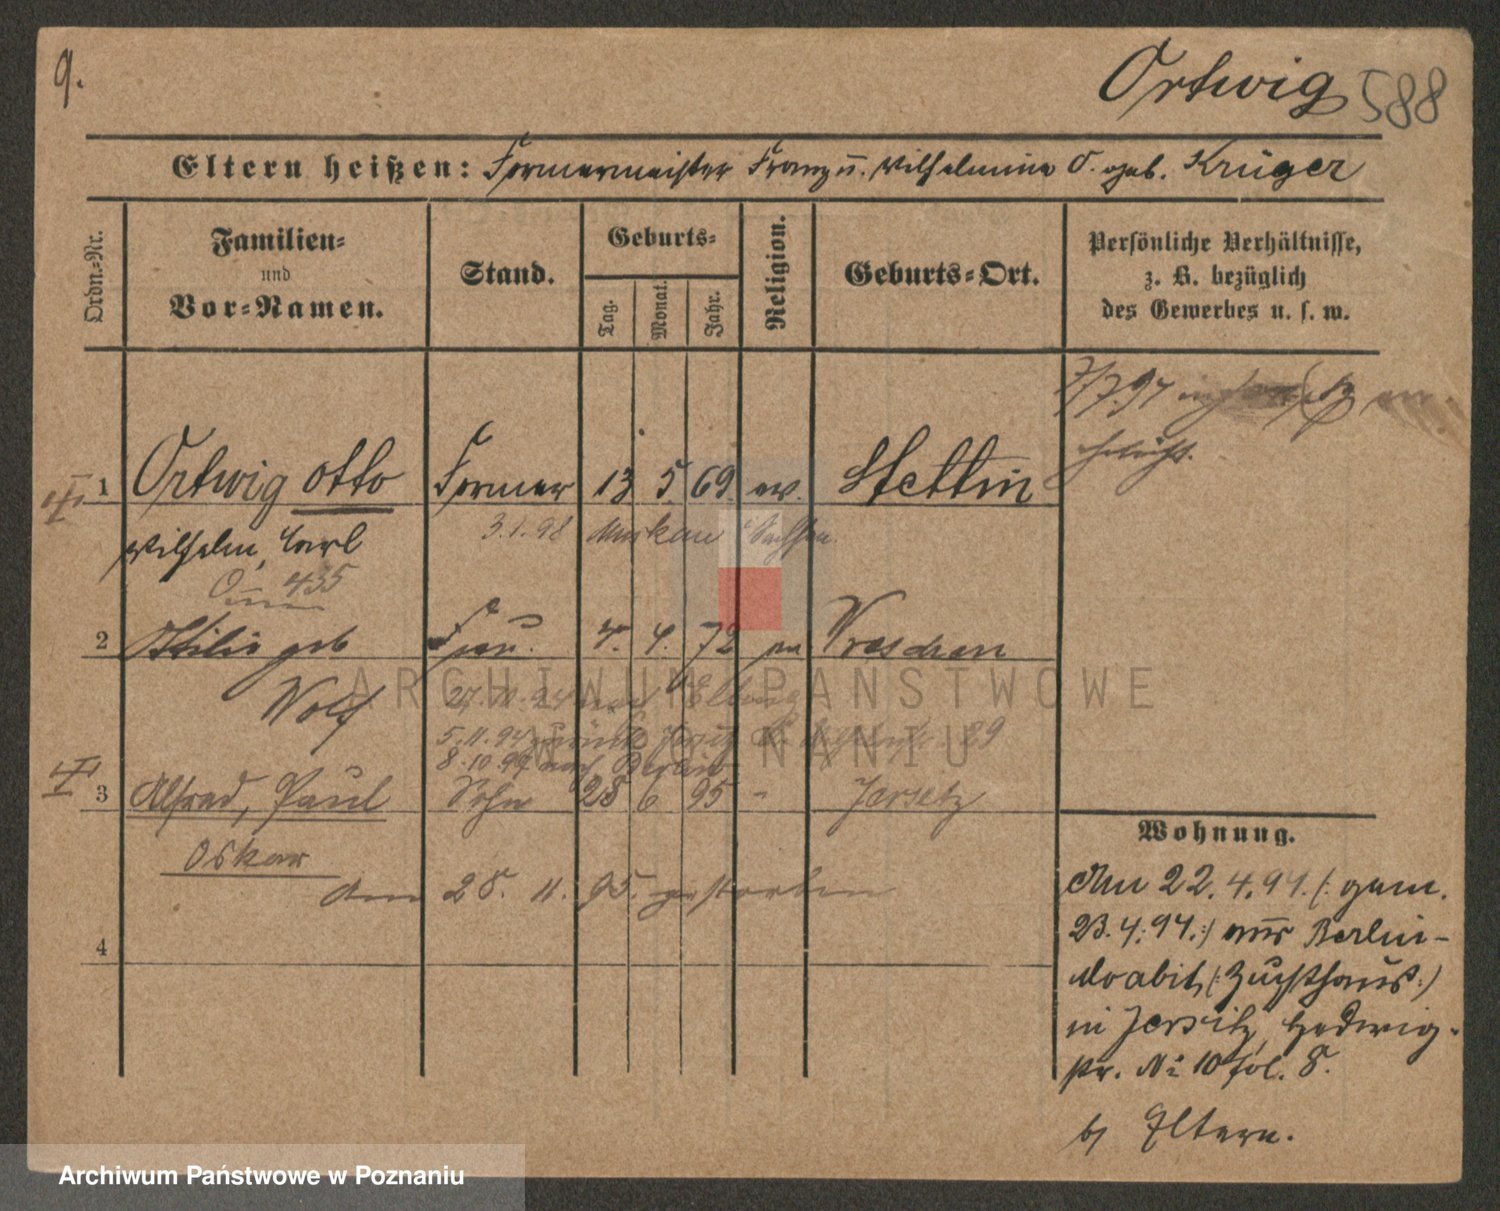 9.
Ortwig 588
Eltern heißen: Formermeister Franz u. Wilhelmine O. geb. Krüger
Ordn.-Nr.
Familien- und Vor-Namen.
Stand.
Geburts-
Tag. Monat. Jahr.
Religion.
Geburts-Ort.
Persönliche Verhältnisse,
z. B. bezüglich
des Gewerbes u. s. w.
7/7.97 in
1 Ortwig Otto Former 13 5 69 ev. Stettin
Wilhelm, Carl
3.1.98 Sachsen
435
2 Ottilie geb Frau. 4. 4. 72 ev Wreschen
Wolf
27. 10. 94 nach Elbing
5.11.94 zurück 29
8.10.99 nach Berlin
3 Alfred, Paul Sohn 28 6 95 - Jersitz
Oskar
am 28. 11. 95. gestorben
4
Wohnung.
Am 22.4.94. (: gem.
23.4.94.:) aus Berlin-
Moabit (: Zuchthaus :)
in Jersitz, Hedwig-
str. No 10 fol. 8.
b/ Eltern.
ARCHIWUM PAŃSTWOWE
W POZNANIU
Archiwum Państwowe w Poznaniu